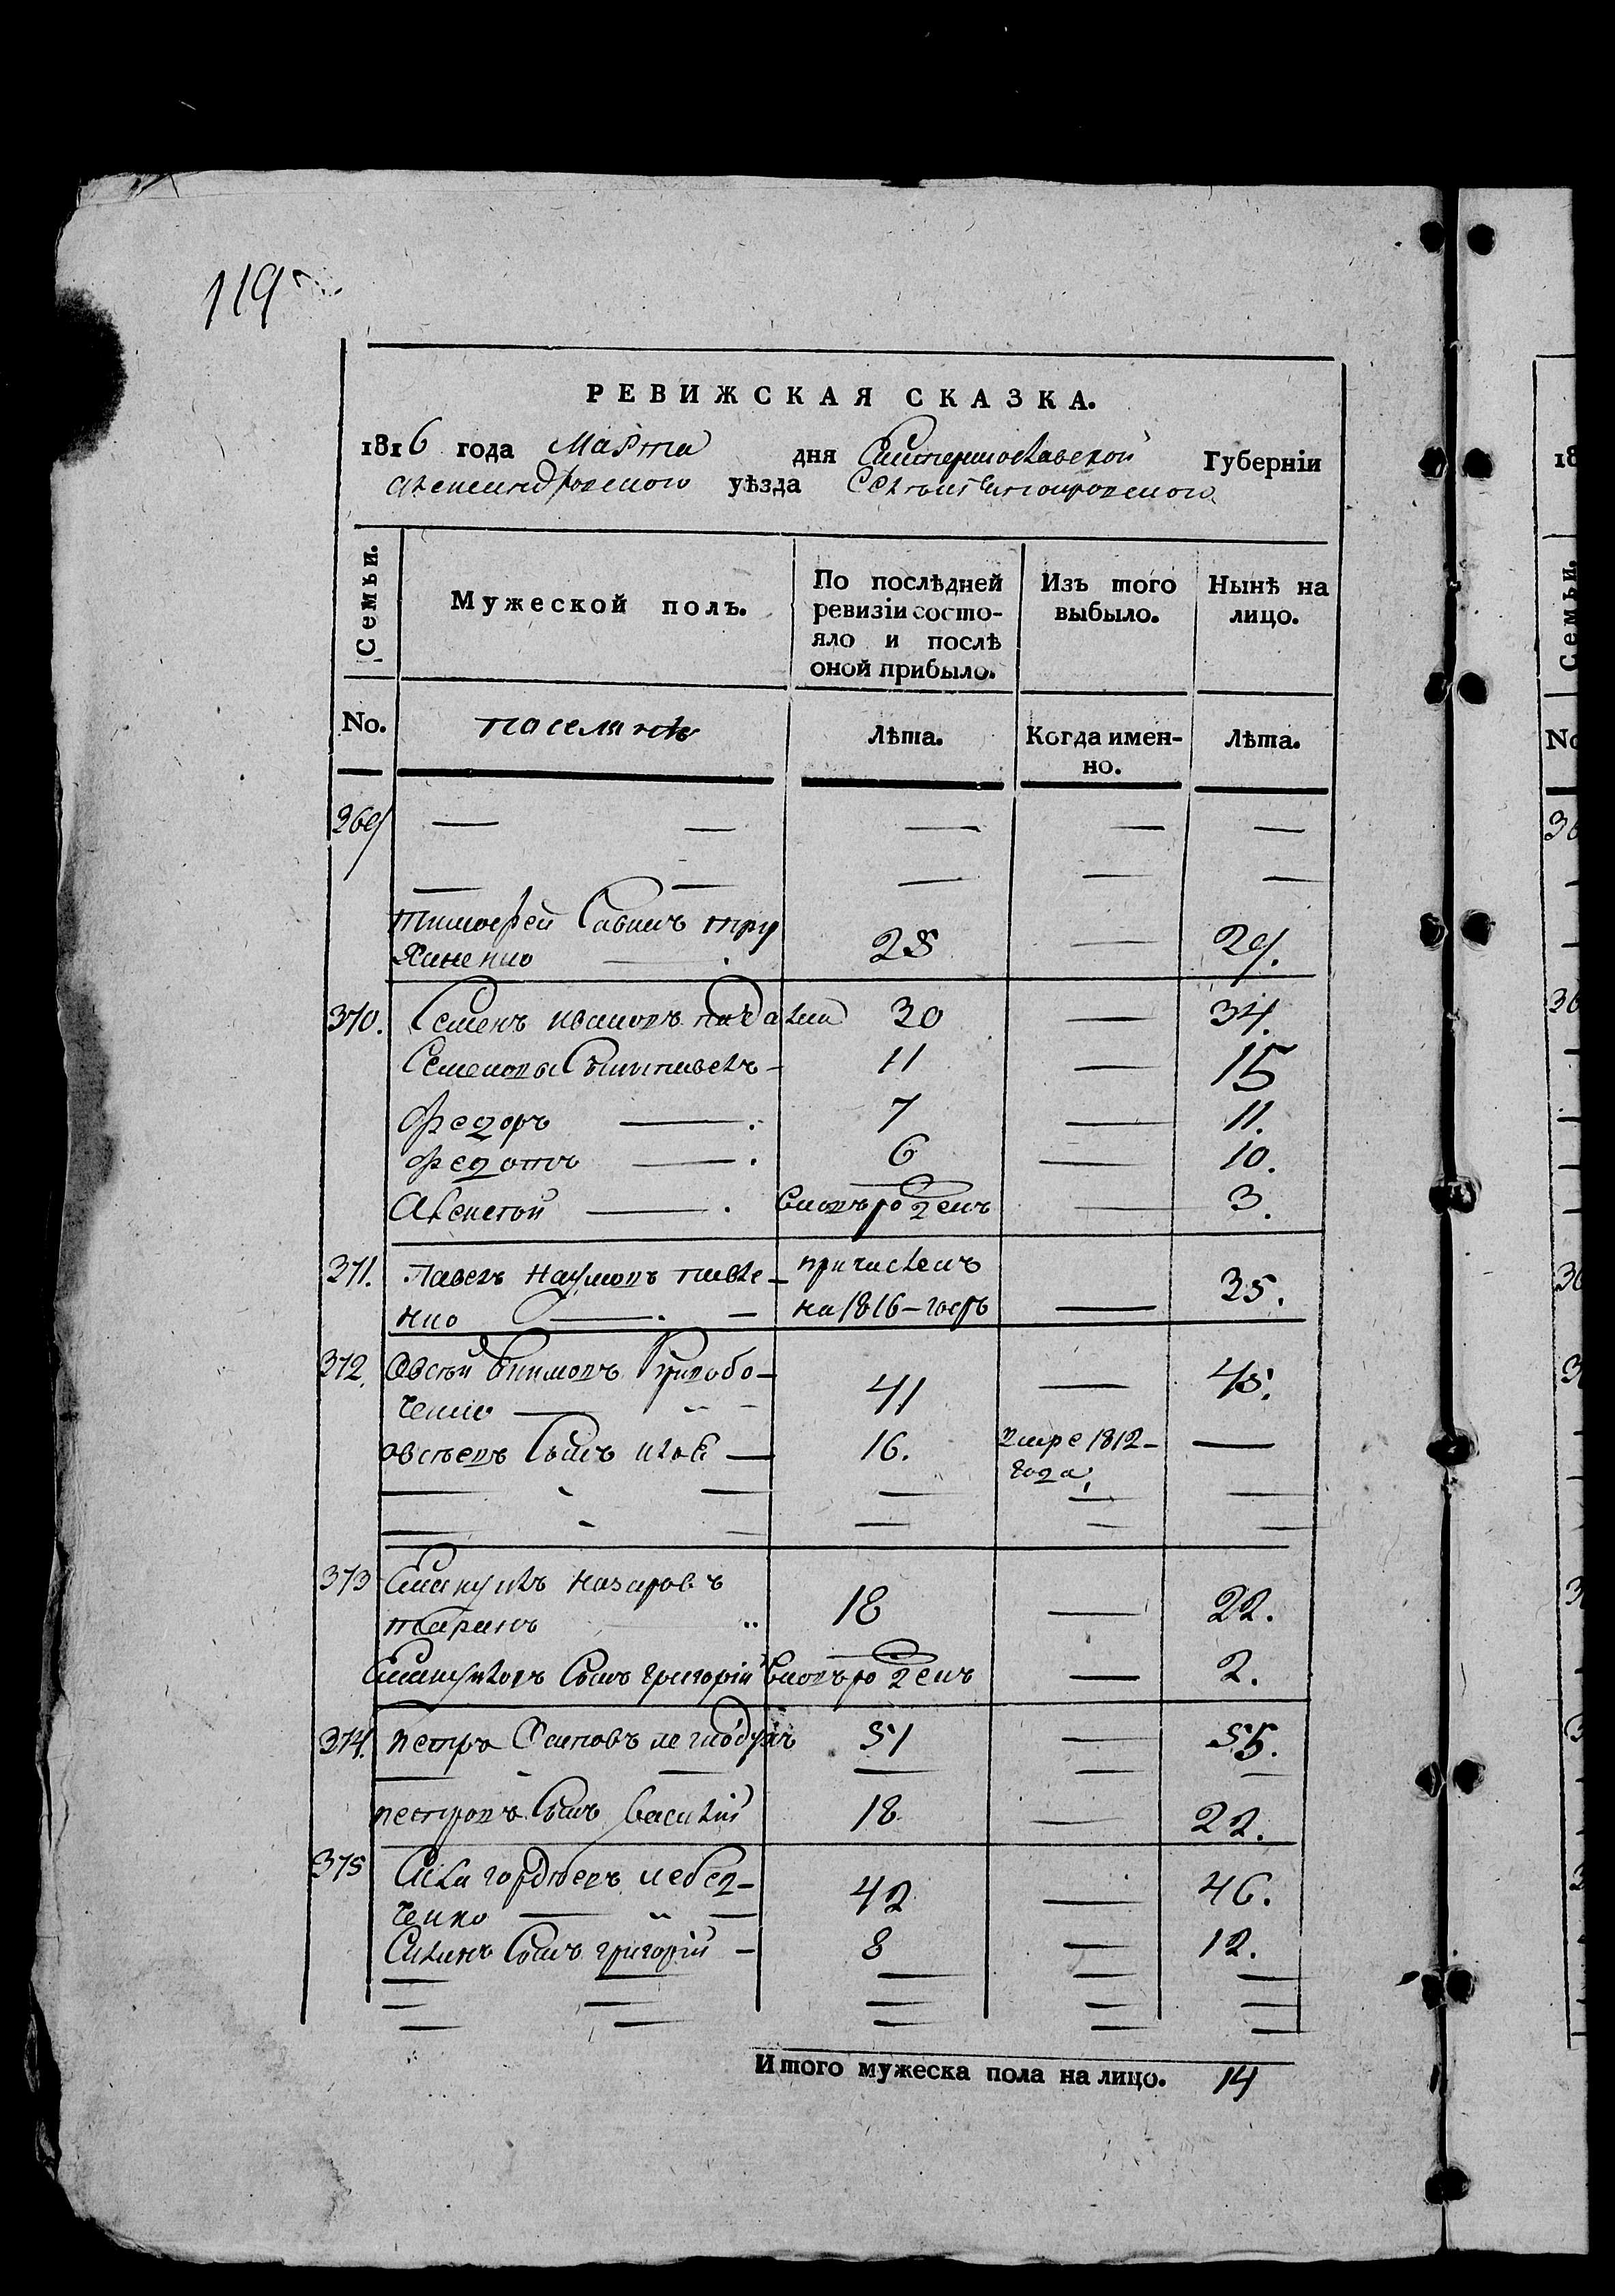 119
РЕВИЖСКАЯ СКАЗКА.
1816 года Марта дня Екатеринославской Губерніи
Александровского уѣзда Села
Семьи.
Мужеской полъ.
По послѣдней ревизіи состо-
яло и послѣ
оной прибыло.
Изъ того
выбыло.
Нынѣ на
лицо.
No.
поселянъ
Лѣта.
Когда имен-
но.
Лѣта.
369
Тимофей Савинъ тру
хиненко 25 29.
370. Семенъ Ивановъ 30 34.
Семеновы Сыны Павелъ 11 15
Федоръ 7 11.
Федотъ 6 10.
Алексей вновь рожденъ 3.
371. Павелъ Наумовъ Павле-
нко причисленъ
на 1816-годъ 35.
372. Овсѣй Грибо-
ченко 41 45.
Овсѣевъ Сынъ 16. умре 1812-
года
373 Емануилъ Назаровъ
18 22.
Емануиловъ Сынъ Григорій вновь рожденъ 2.
374. Петро 51 55.
Петровъ Сынъ Василій 18 22.
375 Сила Гордѣевъ Лебед-
ченко 42 46.
Силинъ Сынъ Григорій 8 12.
Итого мужеска пола на лицо. 14